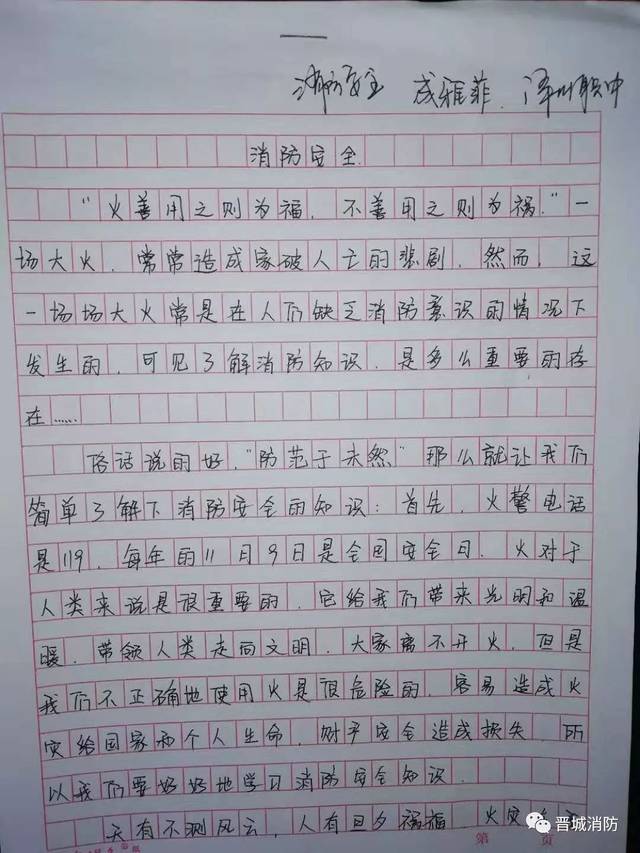 消防安全 成雅菲 泽州职中
消防安全
“火善用之则为福，不善用之则为祸。”一
场大火，常常造成家破人亡的悲剧，然而，这
一场场大火常是在人们缺乏消防意识的情况下
发生的，可见了解消防知识，是多么重要的存
在……
俗话说的好，“防范于未然”那么就让我们
简单了解下消防安全的知识：首先，火警电话
是119，每年的11月9日是全国安全日，火对于
人类来说是很重要的，它给我们带来光明和温
暖，带领人类走向文明，大家离不开火，但是
我们不正确地使用火是很危险的，容易造成火
灾给国家和个人生命，财产安全造成损失，所
以我们要好好地学习消防安全知识。
天有不测风云，人有旦夕祸福，火灾
第 页
晋城消防